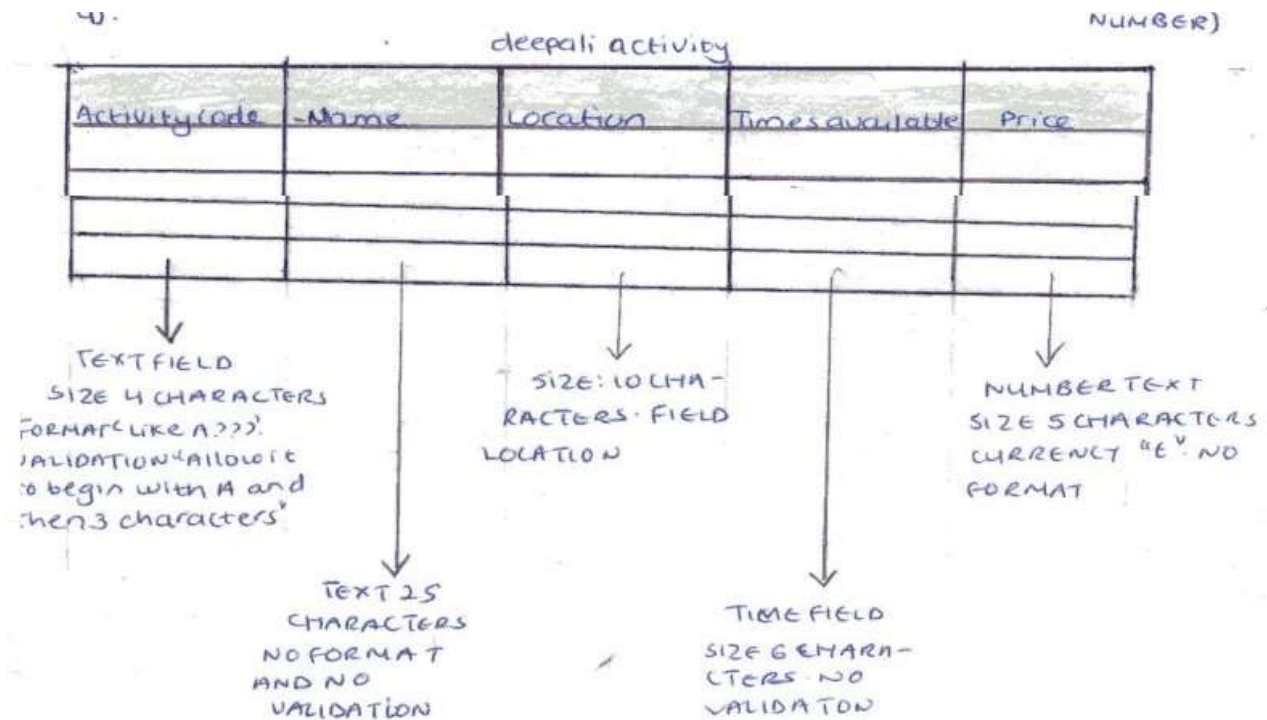 NUMBER)
deepali activity
Activitycode Name Location Timesavailable Price
TEXTFIELD
SIZE 4 CHARACTERS
FORMAT "LIKE A???".
VALIDATION "Allow it
to begin with A and
then 3 characters"
TEXT 25
CHARACTERS
NO FORMAT
AND NO
VALIDATION
SIZE: 10 CHA-
RACTERS. FIELD
LOCATION
TIME FIELD
SIZE 6 CHARA-
CTERS. NO
VALIDATON
NUMBER TEXT
SIZE 5 CHARACTERS
CURRENCY "£". NO
FORMAT